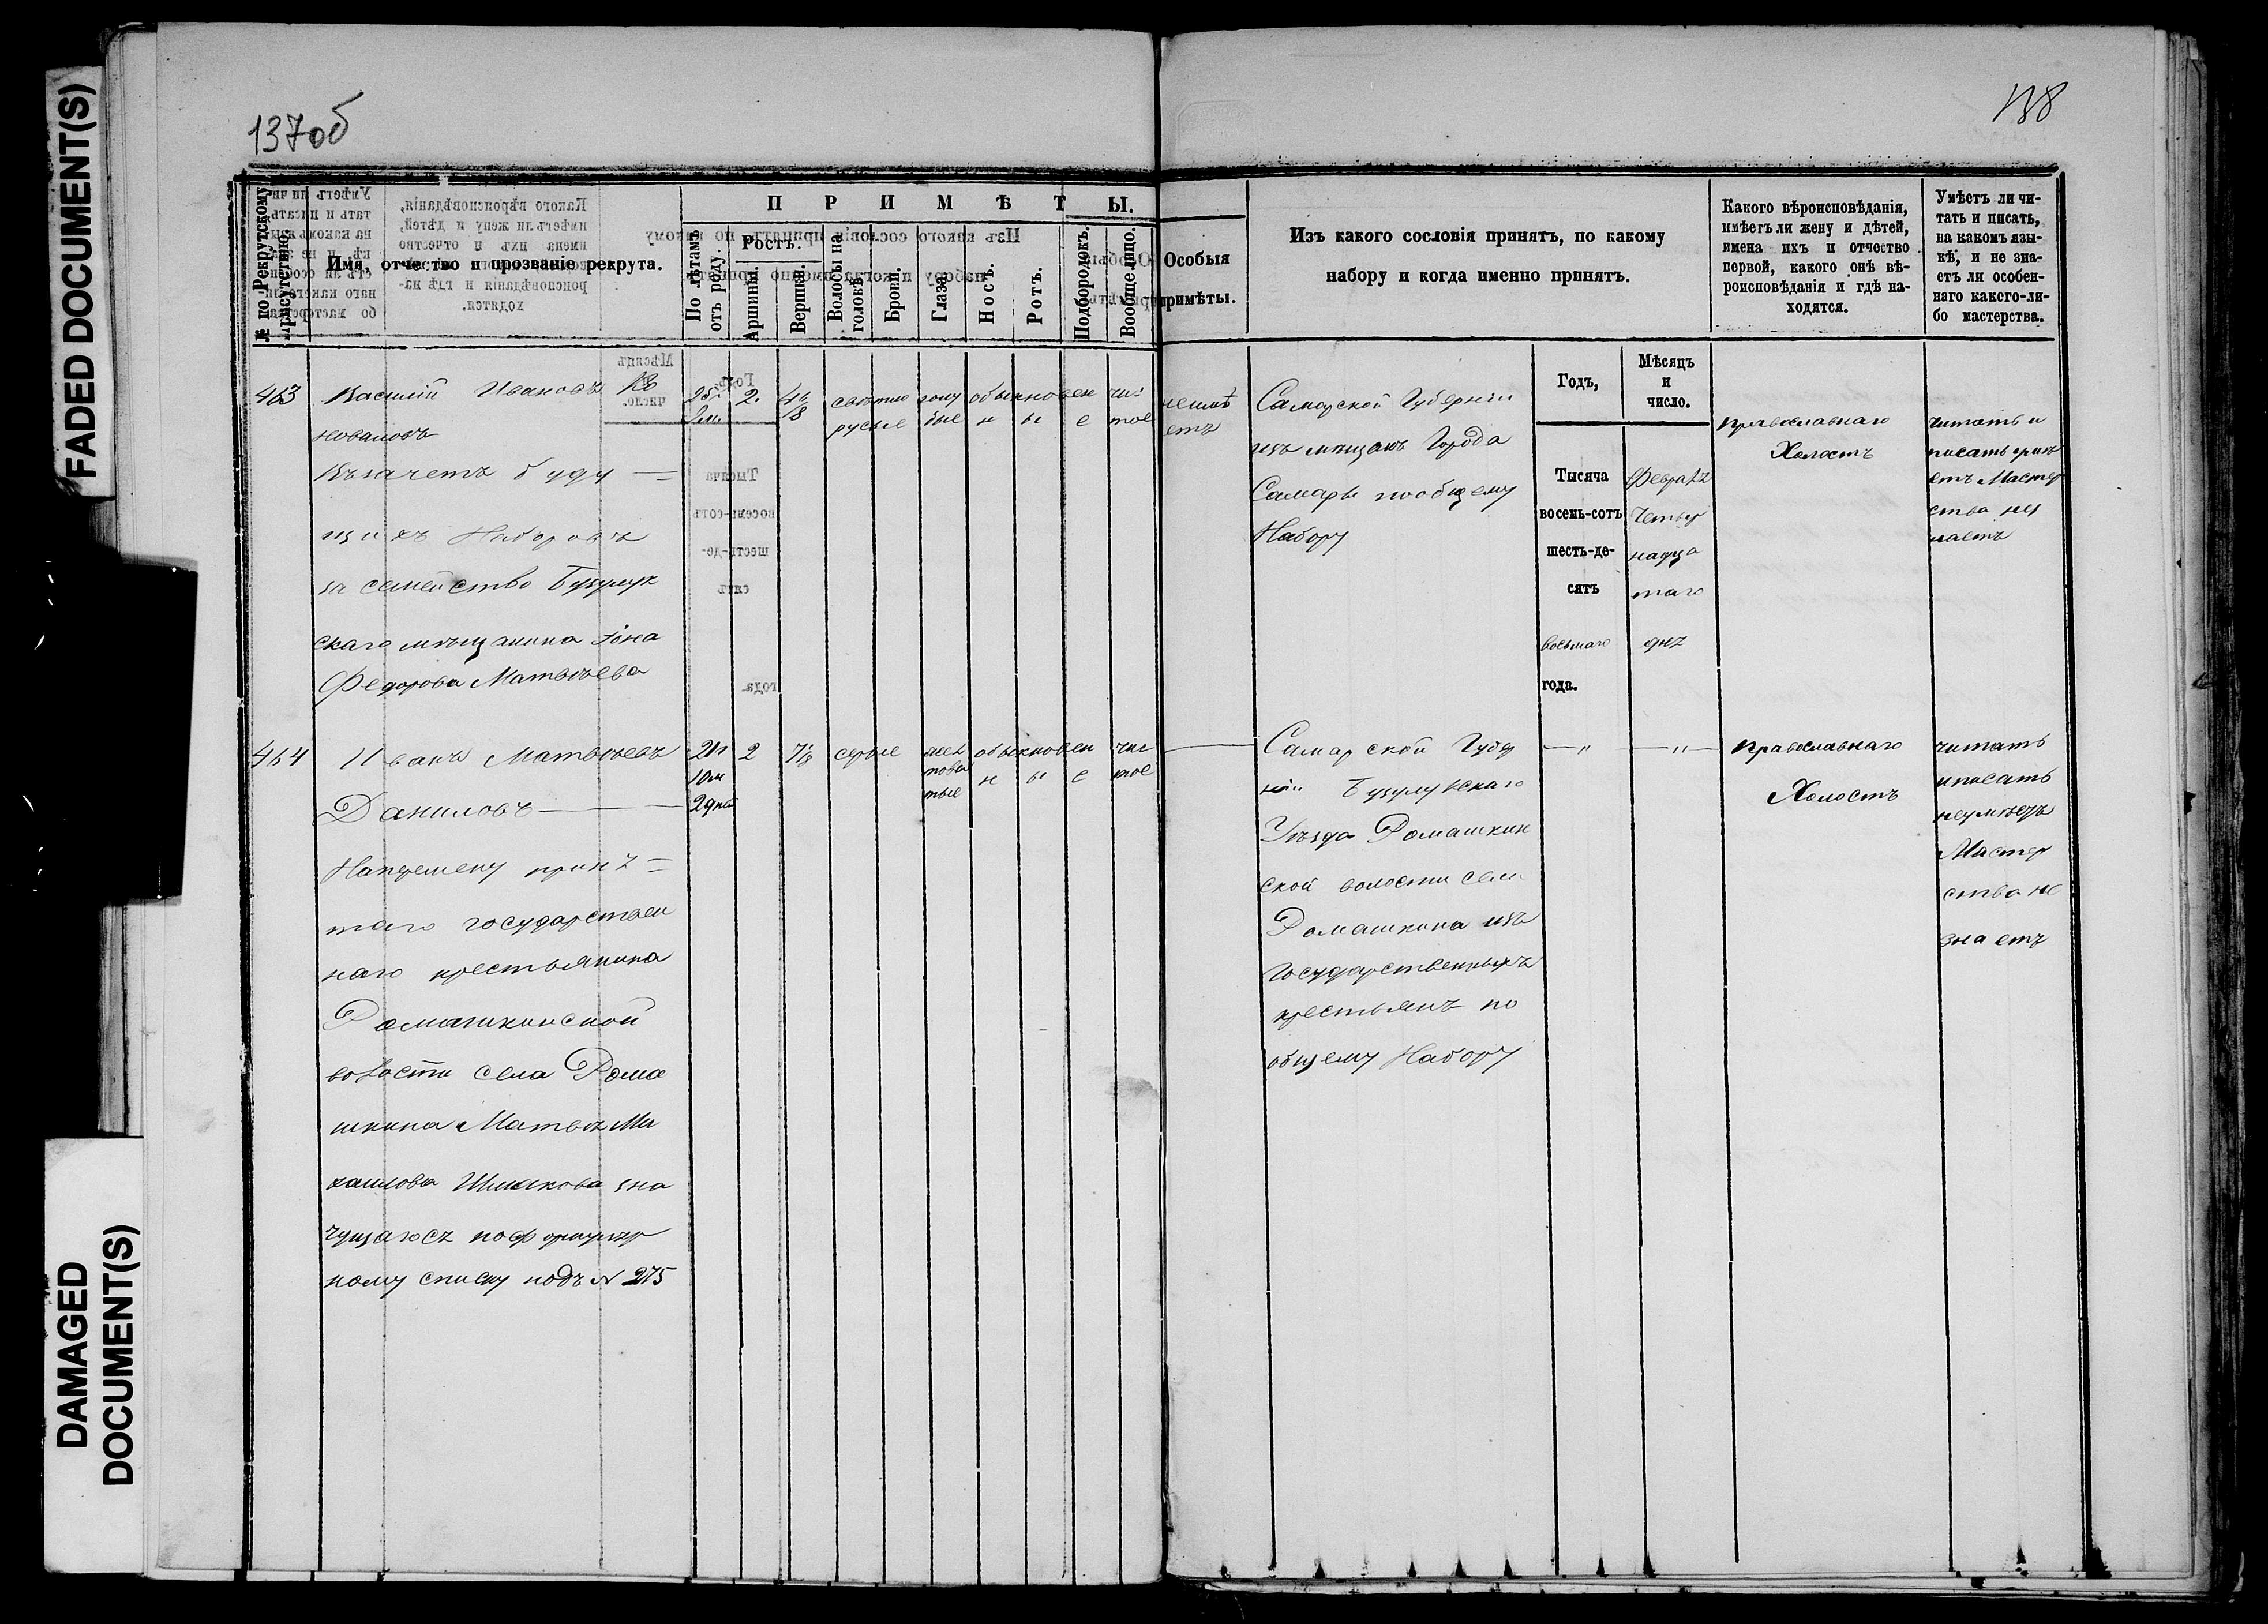 FADED DOCUMENT(S)
DAMAGED
DOCUMENT(S)
137об
138
№ по Рекрутскому
присутствію.
Имя, отчество и прозваніе рекрута.
ПРИМѢТЫ.
По лѣтамъ
отъ роду.
Ростъ.
Аршины.
Вершки.
Волосы на
головѣ
Брови.
Глаза.
Носъ.
Ротъ.
Подбородокъ.
Вообще лицо.
Особыя
примѣты.
Изъ какого сословія принятъ, по какому
набору и когда именно принятъ.
Какого вѣроисповѣданія,
имѣетъ ли жену и дѣтей,
имена ихъ и отчество
первой, какого онѣ вѣ-
роисповѣданія и гдѣ на-
ходятся.
Умѣетъ ли чи-
тать и писать,
на какомъ язы-
кѣ, и не зна-
етъ ли особен-
наго какого-ли-
бо мастерства.
463
Василій Ивановъ Ко
новаловъ
Въ зачетъ буду
щихъ Наборовъ
за семейство Бузулук
скаго мѣщанина Іона
Федорова Матвѣева
2
4 4/8
свѣтло
русые
голу
бые
обыкновен
н ы е
чис
тое
неимѣ
етъ
Самарской Губерніи
изъ мѣщанъ Города
Самары по общему
Набору
Годъ,
Тысяча
восемь-сотъ
шесть-де-
сятъ
восьмаго
года.
Мѣсяцъ
и
число.
Февраля
Четыр
надца
таго
дня
православнаго
Холостъ
читать и
писать умѣ
етъ Мастер
ства не з
наетъ
464
Иванъ Матвѣевъ
Даниловъ
На перемену приня
таго государствен
наго крестьянина
Ромашкинской
волости села Рома
шкина Матвѣя Ми
хайлова Шмакова зна
чущагося по формуляр
ному списку подъ N 275
21 г
10 м
2 дня
2
7 1/8
серые
жел
това
тые
обыкновен
н ы е
чис
тое
Самарской Губер
ніи Бузулукскаго
Уѣзда Ромашкин
ской волости села
Ромашкина изъ
государственныхъ
крестьянъ по
общему Набору
— „ —
— „ —
православнаго
Холостъ
читать
и писать
неумѣетъ
Мастер
ства не
знаетъ